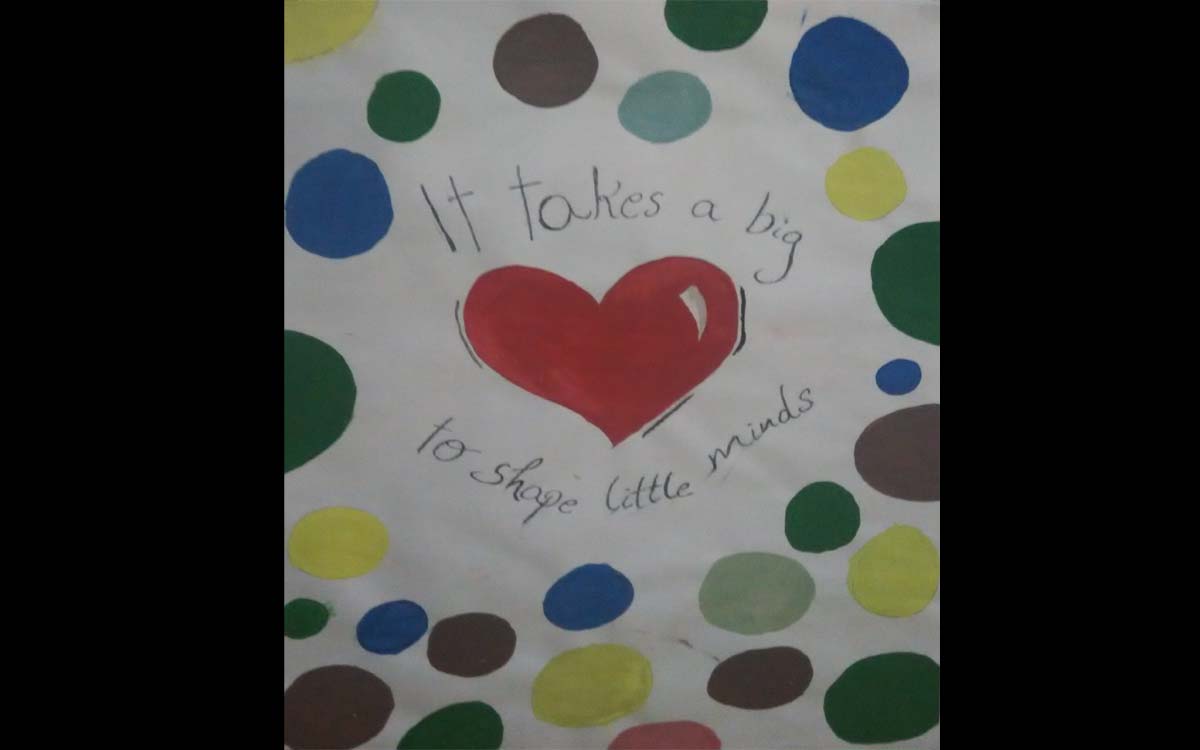 It takes a big
to shape little minds